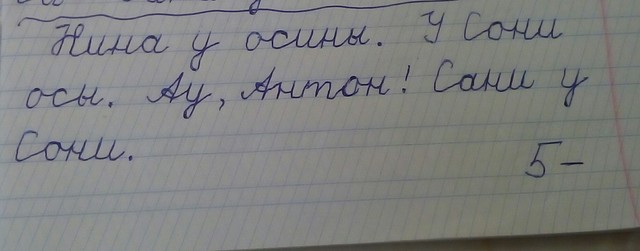 Нина у осины. У Сони
осы. Ау, Антон! Сани у
Сони.
5-